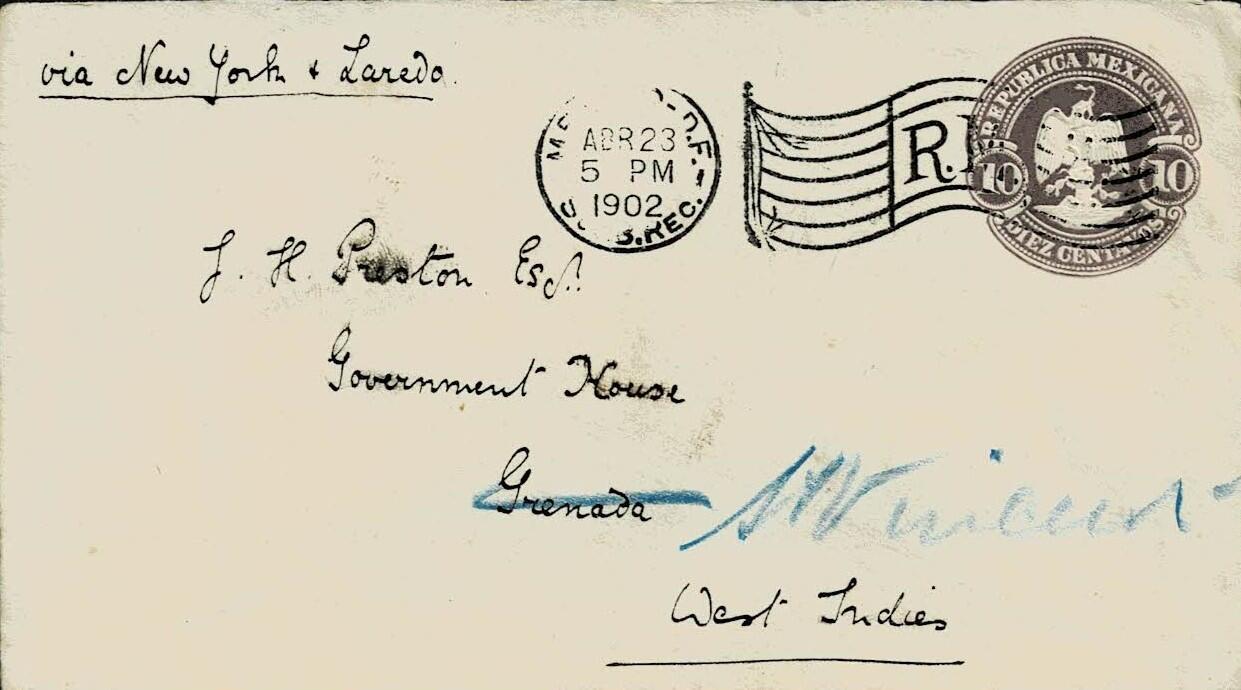 via New York & Laredo.
REPUBLICA MEXICANA
10 10
DIEZ CENTAVOS
D.F.
ABR 23
5 PM
1902
REC.
R.
J. H. Preston Esq.
Government House
Grenada St Vincent
West Indies